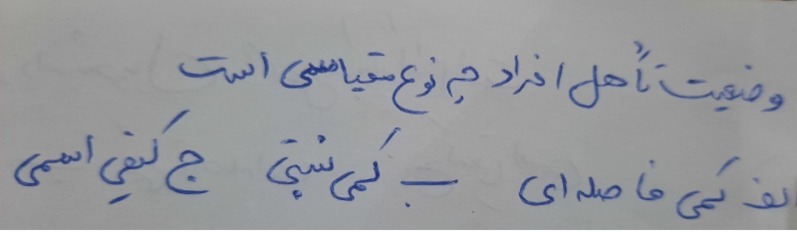 وضعیت تأهل افراد چه نوع مقیاسی است
الف کمی فاصله ای ب کمی نسبتی ج کیفی اسمی